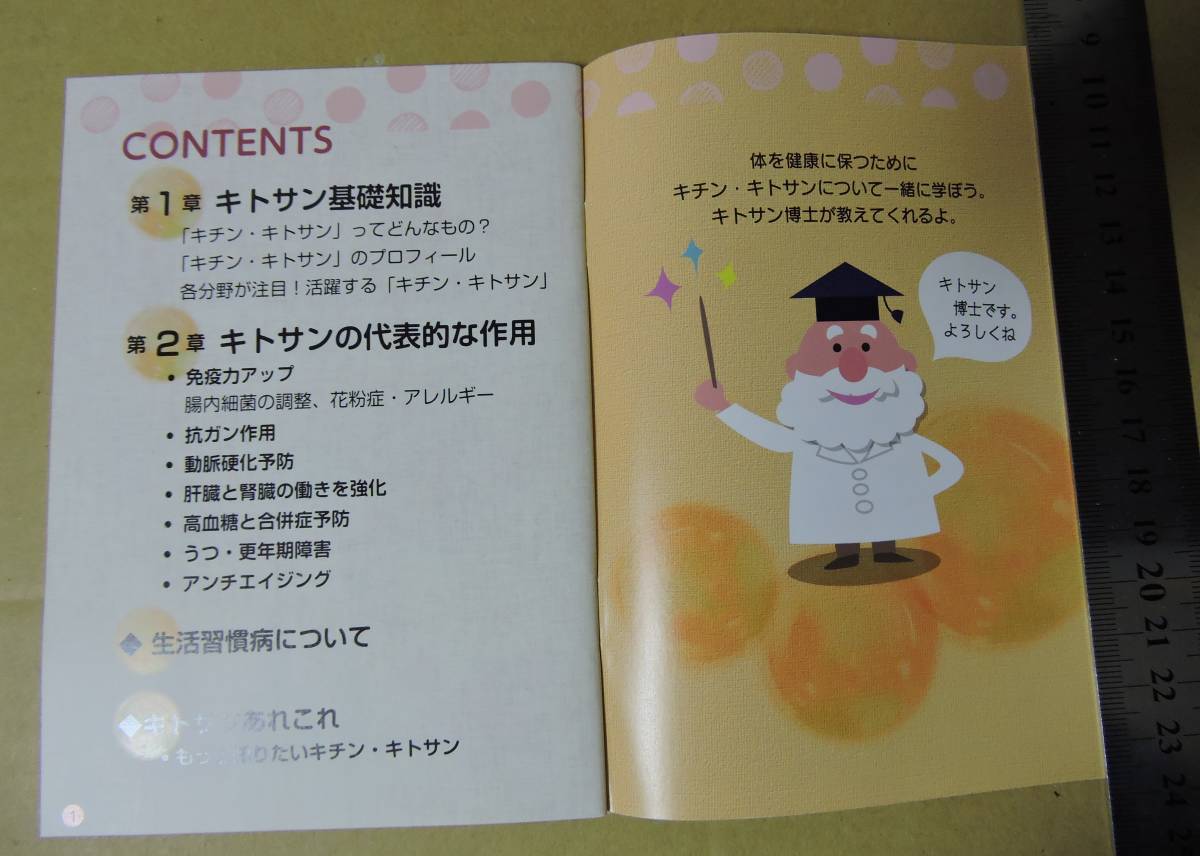 CONTENTS
第1章 キトサン基礎知識
「キチン・キトサン」ってどんなもの？
「キチン・キトサン」のプロフィール
各分野が注目！活躍する「キチン・キトサン」
第2章 キトサンの代表的な作用
• 免疫力アップ
腸内細菌の調整、花粉症・アレルギー
• 抗ガン作用
• 動脈硬化予防
• 肝臓と腎臓の働きを強化
• 高血糖と合併症予防
• うつ・更年期障害
• アンチエイジング
◆ 生活習慣病について
◆キトサンあれこれ
• もっと知りたいキチン・キトサン
1
体を健康に保つために
キチン・キトサンについて一緒に学ぼう。
キトサン博士が教えてくれるよ。
キトサン
博士です。
よろしくね
9
10
11
12
13
14
15
16
17
18
19
20
21
22
23
24